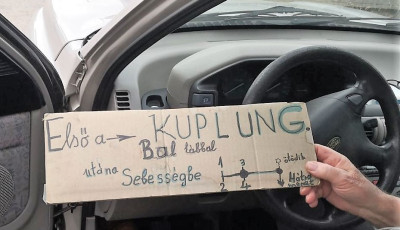 Első a → KUPLUNG.
Bal lábbal
utána Sebességbe 1 3 ötödik
2 4 Hátra
menet